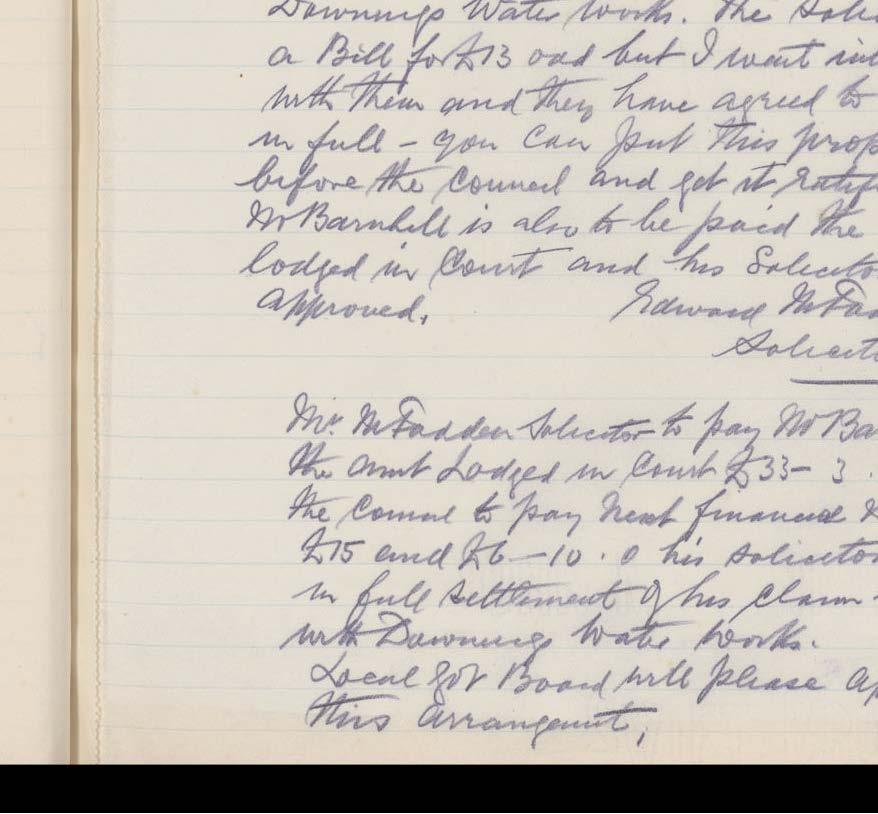 Downings Water Works. The Solic
a Bill for £13 odd but I went int
with them and they have agreed to
in full - you can put this prop
before the Council and get it ratif
Mr Barnhill is also to be paid the
lodged in Court and his Solicito
approved.
Edward McFad
Solicito
Mr. McFadden Solicitor to pay Mr Ba
the amt Lodged in Court £33 - 3 .
the Council to pay next financial
£15 and £6 - 10 . 0 his solicitor
in full settlement of his claim
with Downings Water Works.
Local Govt Board will please ap
this arrangement,